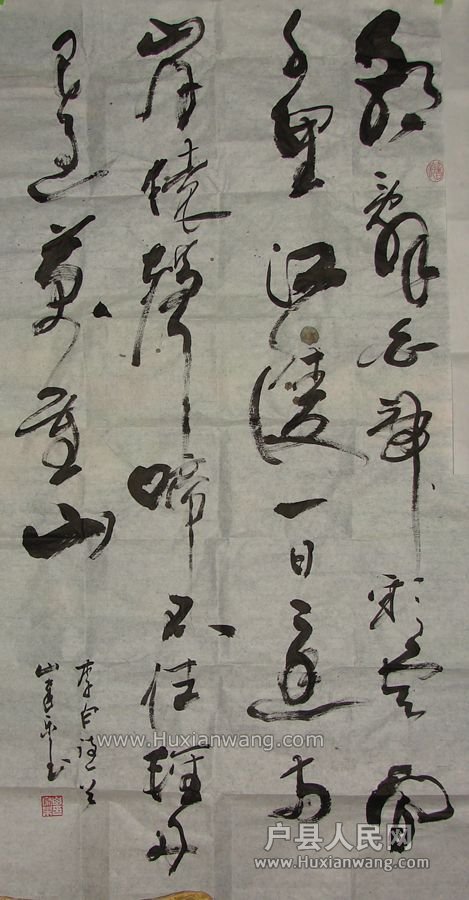 朝辭白帝彩雲間
千里江陵一日還两
岸猿聲啼不住輕舟
已過萬重山
李白詩一首
www.Huxianwang.com
户县人民网
www.Huxianwang.com